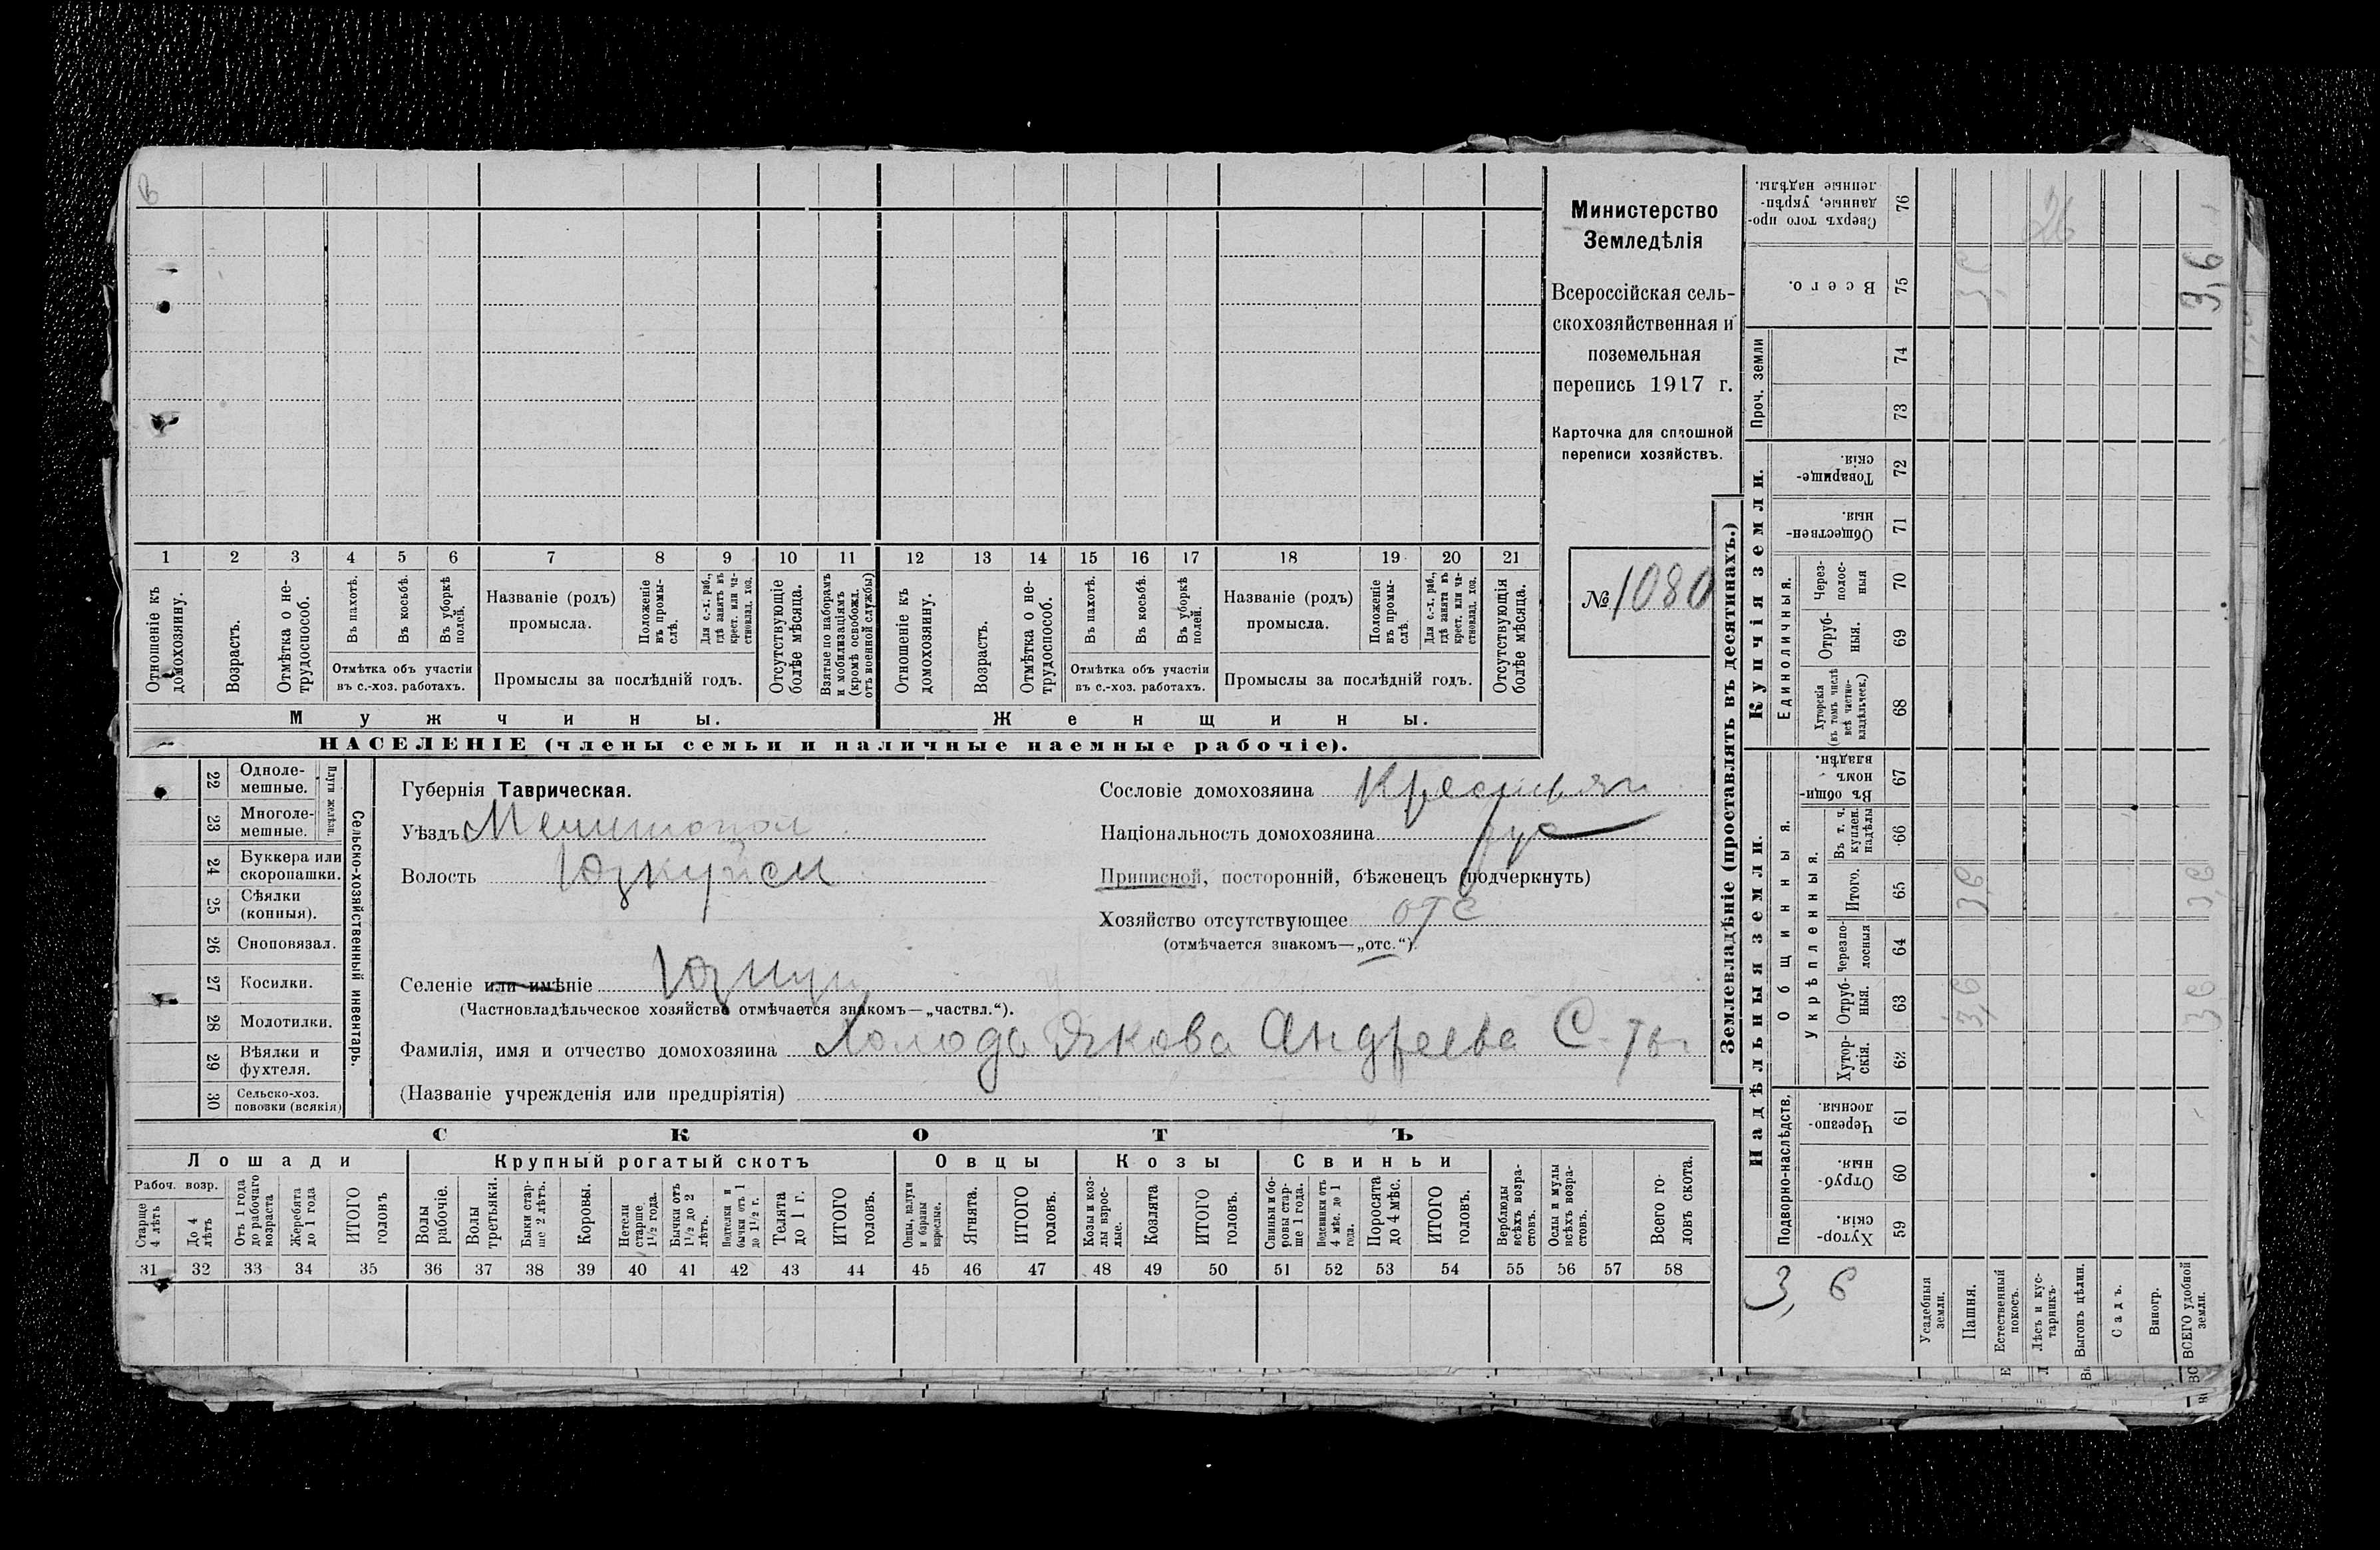 Министерство
Земледѣлія
Всероссійская сель-
скохозяйственная и
поземельная
перепись 1917 г.
Карточка для сплошной
переписи хозяйствъ.
№ 1080
1 2 3 4 5 6 7 8 9 10 11 12 13 14 15 16 17 18 19 20 21
Отношеніе къ домохозяину.
Возрастъ.
Отмѣтка о не-трудоспособ.
Въ пахотѣ.
Въ косьбѣ.
Въ уборкѣ полей.
Отмѣтка объ участіи
въ с.-хоз. работахъ.
Названіе (родъ)
промысла.
Положеніе въ промы-слѣ.
Для с.-х. раб., гдѣ занятъ въ крест. или ча-стновлад. хоз.
Промыслы за послѣдній годъ.
Отсутствующіе болѣе мѣсяца.
Взятые по наборамъ и мобилизаціямъ (кромѣ освобожд. отъ военной службы)
Отношеніе къ домохозяину.
Возрастъ.
Отмѣтка о не-трудоспособ.
Въ пахотѣ.
Въ косьбѣ.
Въ уборкѣ полей.
Отмѣтка объ участіи
въ с.-хоз. работахъ.
Названіе (родъ)
промысла.
Положеніе въ промы-слѣ.
Для с.-х. раб., гдѣ занята въ крест. или ча-стновлад. хоз.
Промыслы за послѣдній годъ.
Отсутствующія болѣе мѣсяца.
Мужчины.
Женщины.
НАСЕЛЕНІЕ (члены семьи и наличные наемные рабочіе).
22 Одноле-мешные.
23 Многоле-мешные.
Плуги желѣзн.
24 Буккера или скоропашки.
25 Сѣялки (конныя).
26 Сноповязал.
27 Косилки.
28 Молотилки.
29 Вѣялки и фухтеля.
30 Сельско-хоз. повозки (всякія)
Сельско-хозяйственный инвентарь.
Губернія Таврическая.
Уѣздъ Мелитопол
Волость Юзкуйск
Селеніе или имѣніе
(Частновладѣльческое хозяйство отмѣчается знакомъ—„частвл.“).
Сословіе домохозяина Крестьян
Національность домохозяина рус
Приписной, посторонній, бѣженецъ (подчеркнуть)
Хозяйство отсутствующее отс
(отмѣчается знакомъ—„отс.“).
Фамилія, имя и отчество домохозяина Холода Якова Андреева
(Названіе учрежденія или предпріятія)
СКОТЪ
Лошади
Крупный рогатый скотъ
Овцы
Козы
Свиньи
Рабоч. возр.
Старше 4 лѣтъ
До 4 лѣтъ
Отъ 1 года до рабочаго возраста
Жеребята до 1 года
ИТОГО головъ
Волы рабочіе.
Волы третьяки.
Быки стар-ше 2 лѣтъ.
Коровы.
Нетели старше 1½ года.
Бычки отъ 1½ до 2 лѣтъ.
Подтелки и бычки отъ 1 до 1½ г.
Телята до 1 г.
ИТОГО головъ.
Овцы, валухи и бараны взрослые.
Ягнята.
ИТОГО головъ.
Козы и коз-лы взрос-лые.
Козлята
ИТОГО головъ.
Свиньи и бо-ровы стар-ше 1 года.
Подсвинки отъ 4 мѣс. до 1 года.
Поросята до 4 мѣс.
ИТОГО головъ.
Верблюды всѣхъ возра-стовъ.
Ослы и мулы всѣхъ возра-стовъ.
Всего го-ловъ скота.
31 32 33 34 35 36 37 38 39 40 41 42 43 44 45 46 47 48 49 50 51 52 53 54 55 56 57 58
Землевладѣніе (проставлять въ десятинахъ.)
Надѣльныя земли.
Купчія земли.
Проч. земли
Подворно-наслѣдств.
Общинныя.
Укрѣпленныя.
Единоличныя.
Хутор-скія. 59
Отруб-ныя. 60
Черезпо-лосныя. 61
Хутор-скія. 62
Отруб-ныя. 63
Черезпо-лосныя 64
Итого. 65
Въ т. ч. куплен. надѣлы 66
Въ общи-номъ владѣн. 67
Хуторскія (въ томъ числѣ всѣ частно-владѣльческ.) 68
Отруб-ныя. 69
Через-полос-ныя 70
Обществен-ныя. 71
Товарище-скія. 72
73
74
Всего. 75
Сверхъ того про-данные, укрѣп-ленные надѣлы. 76
3,6
Усадебныя земли.
Пашня. 3,6 3,6 3,6
Естественный покосъ.
Лѣсъ и кус-тарникъ. 26
Выгонъ цѣлин.
Садъ.
Виногр.
ВСЕГО удобной земли. 3,6 3,6 3,6